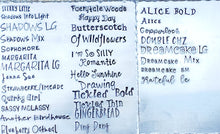 Shadows Into Light
SHADOWS LG
Shadows Mix
SOPHOMORE
MARGARITA
MARGARITA LG
Jenna Sue
Strawberry/limeade
Quirky Girl
SASSY MOLASSY
Another Birdhouse
Bluebirds Outside
Fairytale Woods
Happy Day
Butterscotch
Of Wildflowers
I'm So Silly
Romantic
Hello Sunshine
Drawing
Tickled Bold
Tickled Thin
GINGERBREAD
Ding Dong
ALICE BOLD
Alice
Copperlock
DOUBLE CHZ
DREAMCAKE LG
Dreamcake Mix
Dreamcake SM
Grateful